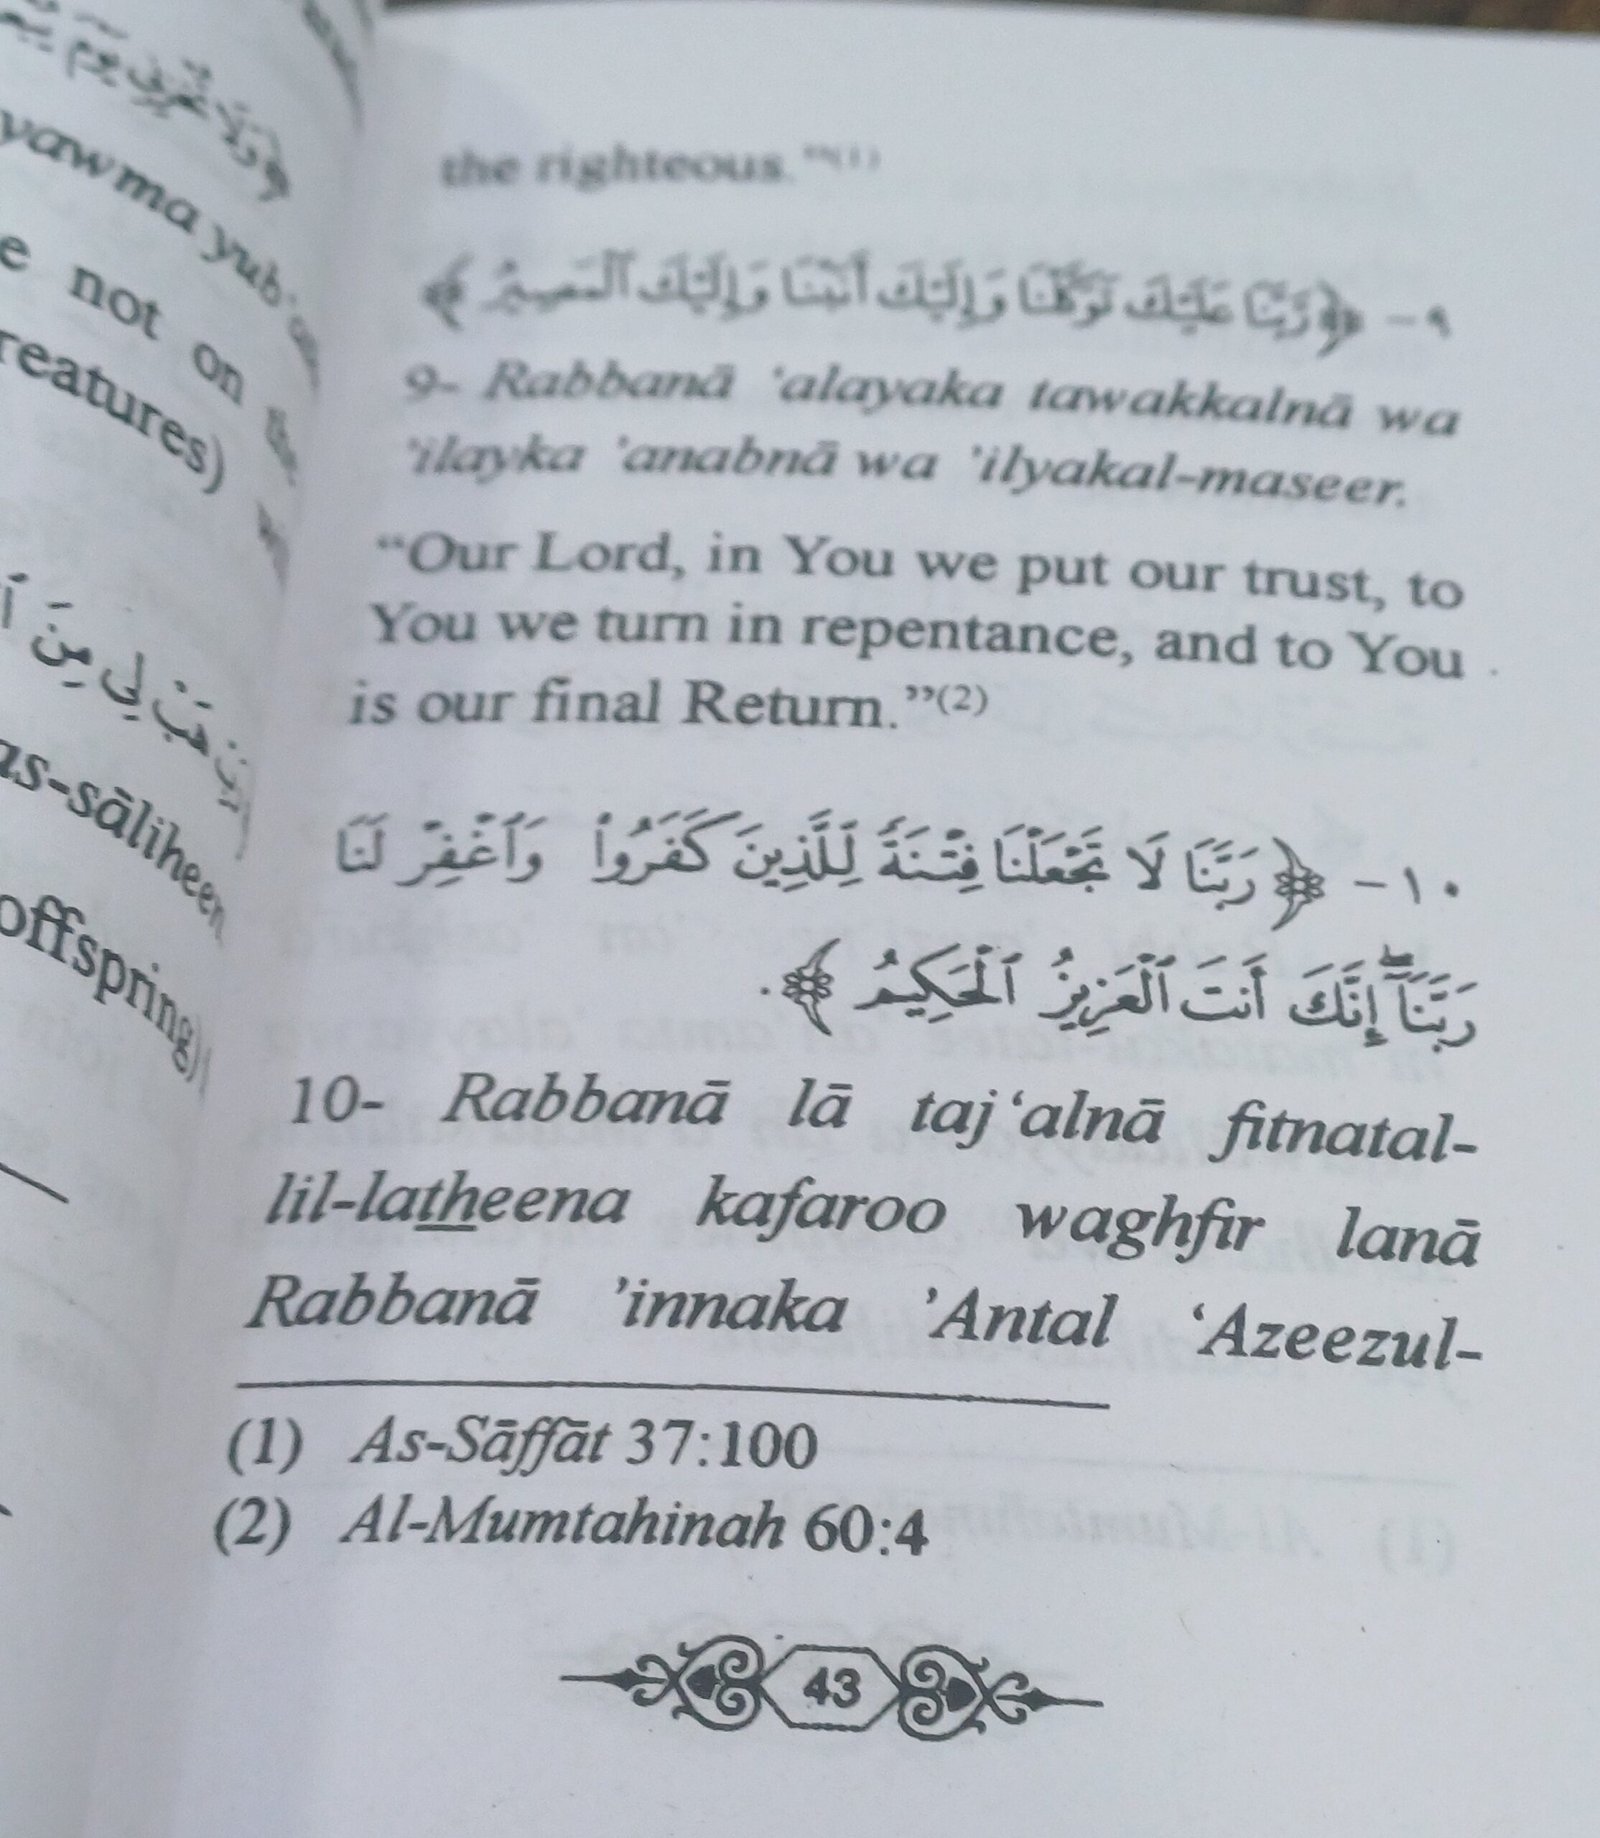 yawma yub'
e not on
reatures)
هَبْ لِي مِنَ
as-sāliheen
offspring)
the righteous.”(1)
٩- ﴿رَبَّنَا عَلَيْكَ تَوَكَّلْنَا وَإِلَيْكَ أَنَبْنَا وَإِلَيْكَ ٱلْمَصِيرُ﴾
9- Rabbanā ‘alayaka tawakkalnā wa
’ilayka ’anabnā wa ’ilyakal-maseer.
“Our Lord, in You we put our trust, to
You we turn in repentance, and to You
is our final Return.”(2)
١٠- ﴿رَبَّنَا لَا تَجْعَلْنَا فِتْنَةً لِّلَّذِينَ كَفَرُوا۟ وَٱغْفِرْ لَنَا
رَبَّنَآ ۖ إِنَّكَ أَنتَ ٱلْعَزِيزُ ٱلْحَكِيمُ﴾.
10- Rabbanā lā taj‘alnā fitnatal-
lil-latheena kafaroo waghfir lanā
Rabbanā ’innaka ’Antal ‘Azeezul-
(1) As-Sāffāt 37:100
(2) Al-Mumtahinah 60:4
43